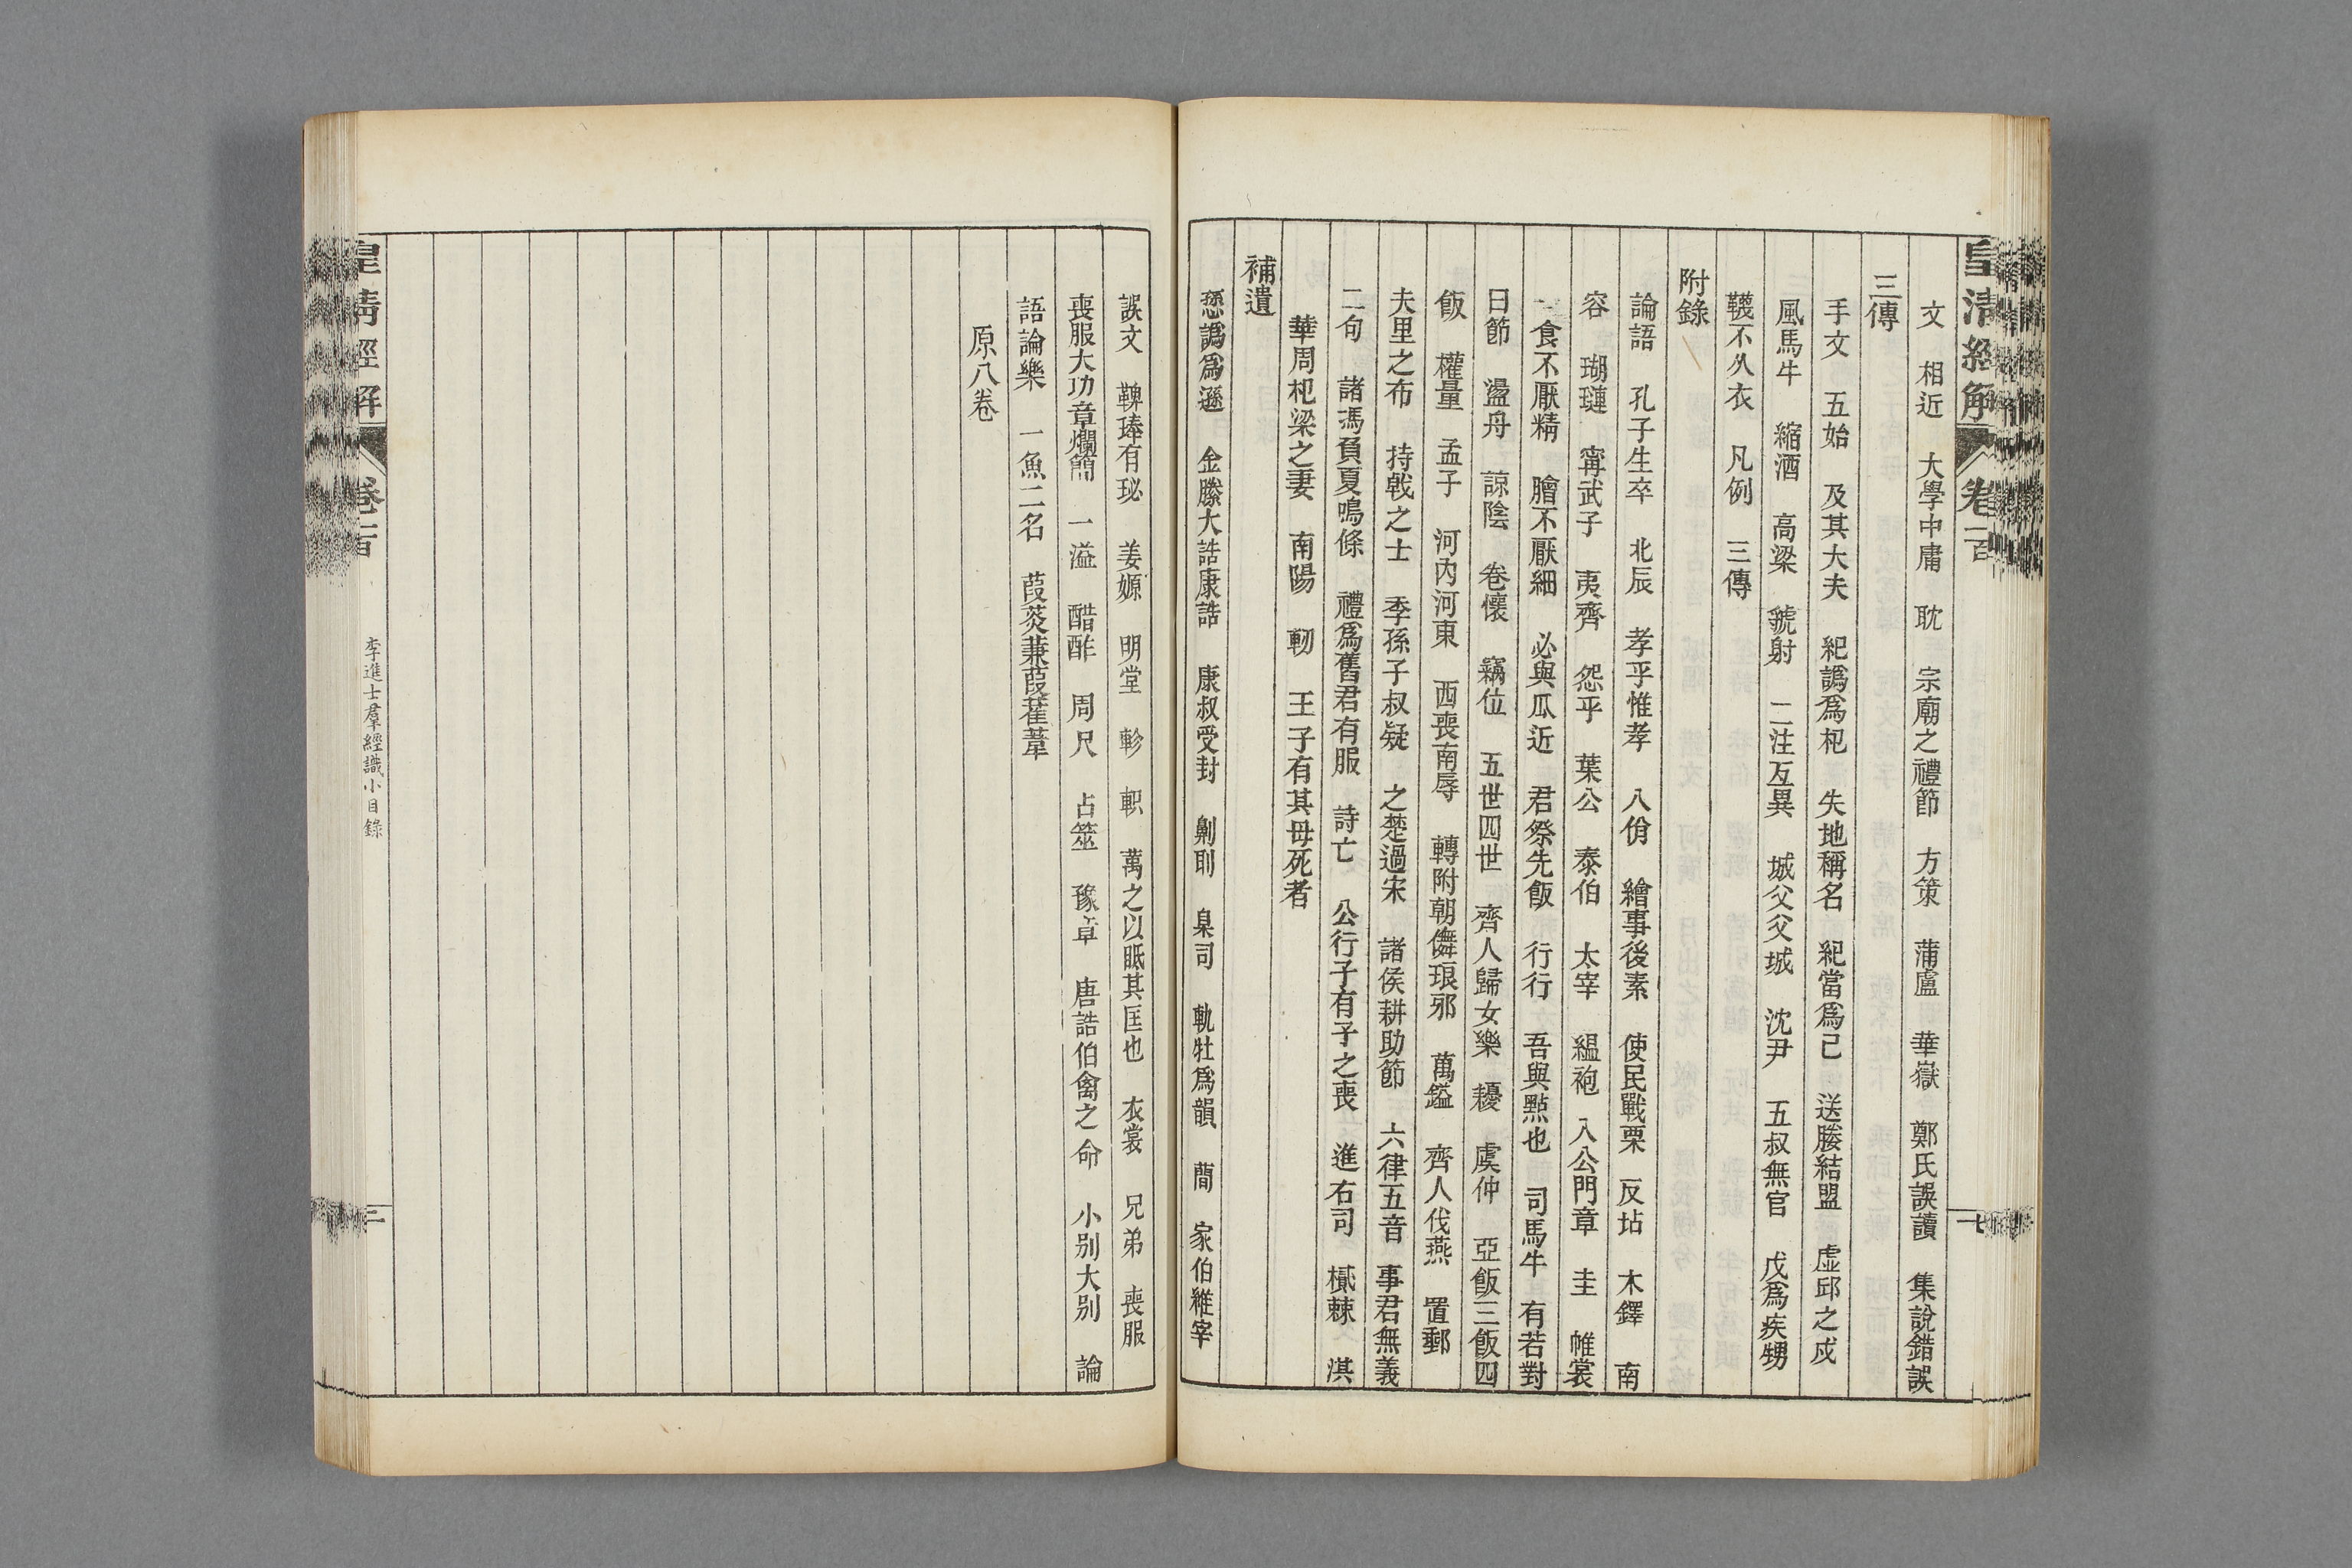 皇清經解 卷一百 七
文 相近 大學中庸 耽 宗廟之禮節 方策 蒲盧 華嶽 鄭氏誤讀 集說錯誤
三傳
手文 五始 及其大夫 紀譌爲杞 失地稱名 紀當爲已 送媵結盟 虛邱之戍
風馬牛 縮酒 高梁 虢射 二注互異 城父父城 沈尹 五叔無官 戊爲疾甥
韤不久衣 凡例 三傳
附錄
論語 孔子生卒 北辰 孝乎惟孝 八佾 繪事後素 使民戰栗 反坫 木鐸 南
容 瑚璉 甯武子 夷齊 怨乎 葉公 泰伯 太宰 縕袍 入公門章 圭 帷裳
食不厭精 膾不厭細 必與瓜近 君祭先飯 行行 吾與點也 司馬牛 有若對
曰節 盪舟 諒陰 卷懷 竊位 五世四世 齊人歸女樂 耰 虞仲 亞飯三飯四
飯 權量 孟子 河內河東 西喪南辱 轉附朝儛琅邪 萬鎰 齊人伐燕 置郵
夫里之布 持戟之士 季孫子叔疑 之楚過宋 諸侯耕助節 六律五音 事君無義
二句 諸馮負夏鳴條 禮爲舊君有服 詩亡 公行子有子之喪 進右司 樲棘 淇
華周杞梁之妻 南陽 軔 王子有其母死者
補遺
愻譌爲遜 金縢大誥康誥 康叔受封 劓刵 臬司 軌牡爲韻 蕳 家伯維宰
誤文 鞞琫有珌 姜嫄 明堂 軫 軹 萬之以眡其匡也 衣裳 兄弟 喪服
喪服大功章爛簡 一溢 醋酢 周尺 占筮 豫章 唐誥伯禽之命 小別大別 論
語論樂 一魚二名 葭菼蒹葭萑葦
原八卷
皇清經解 卷一百 李進士羣經識小目錄 二